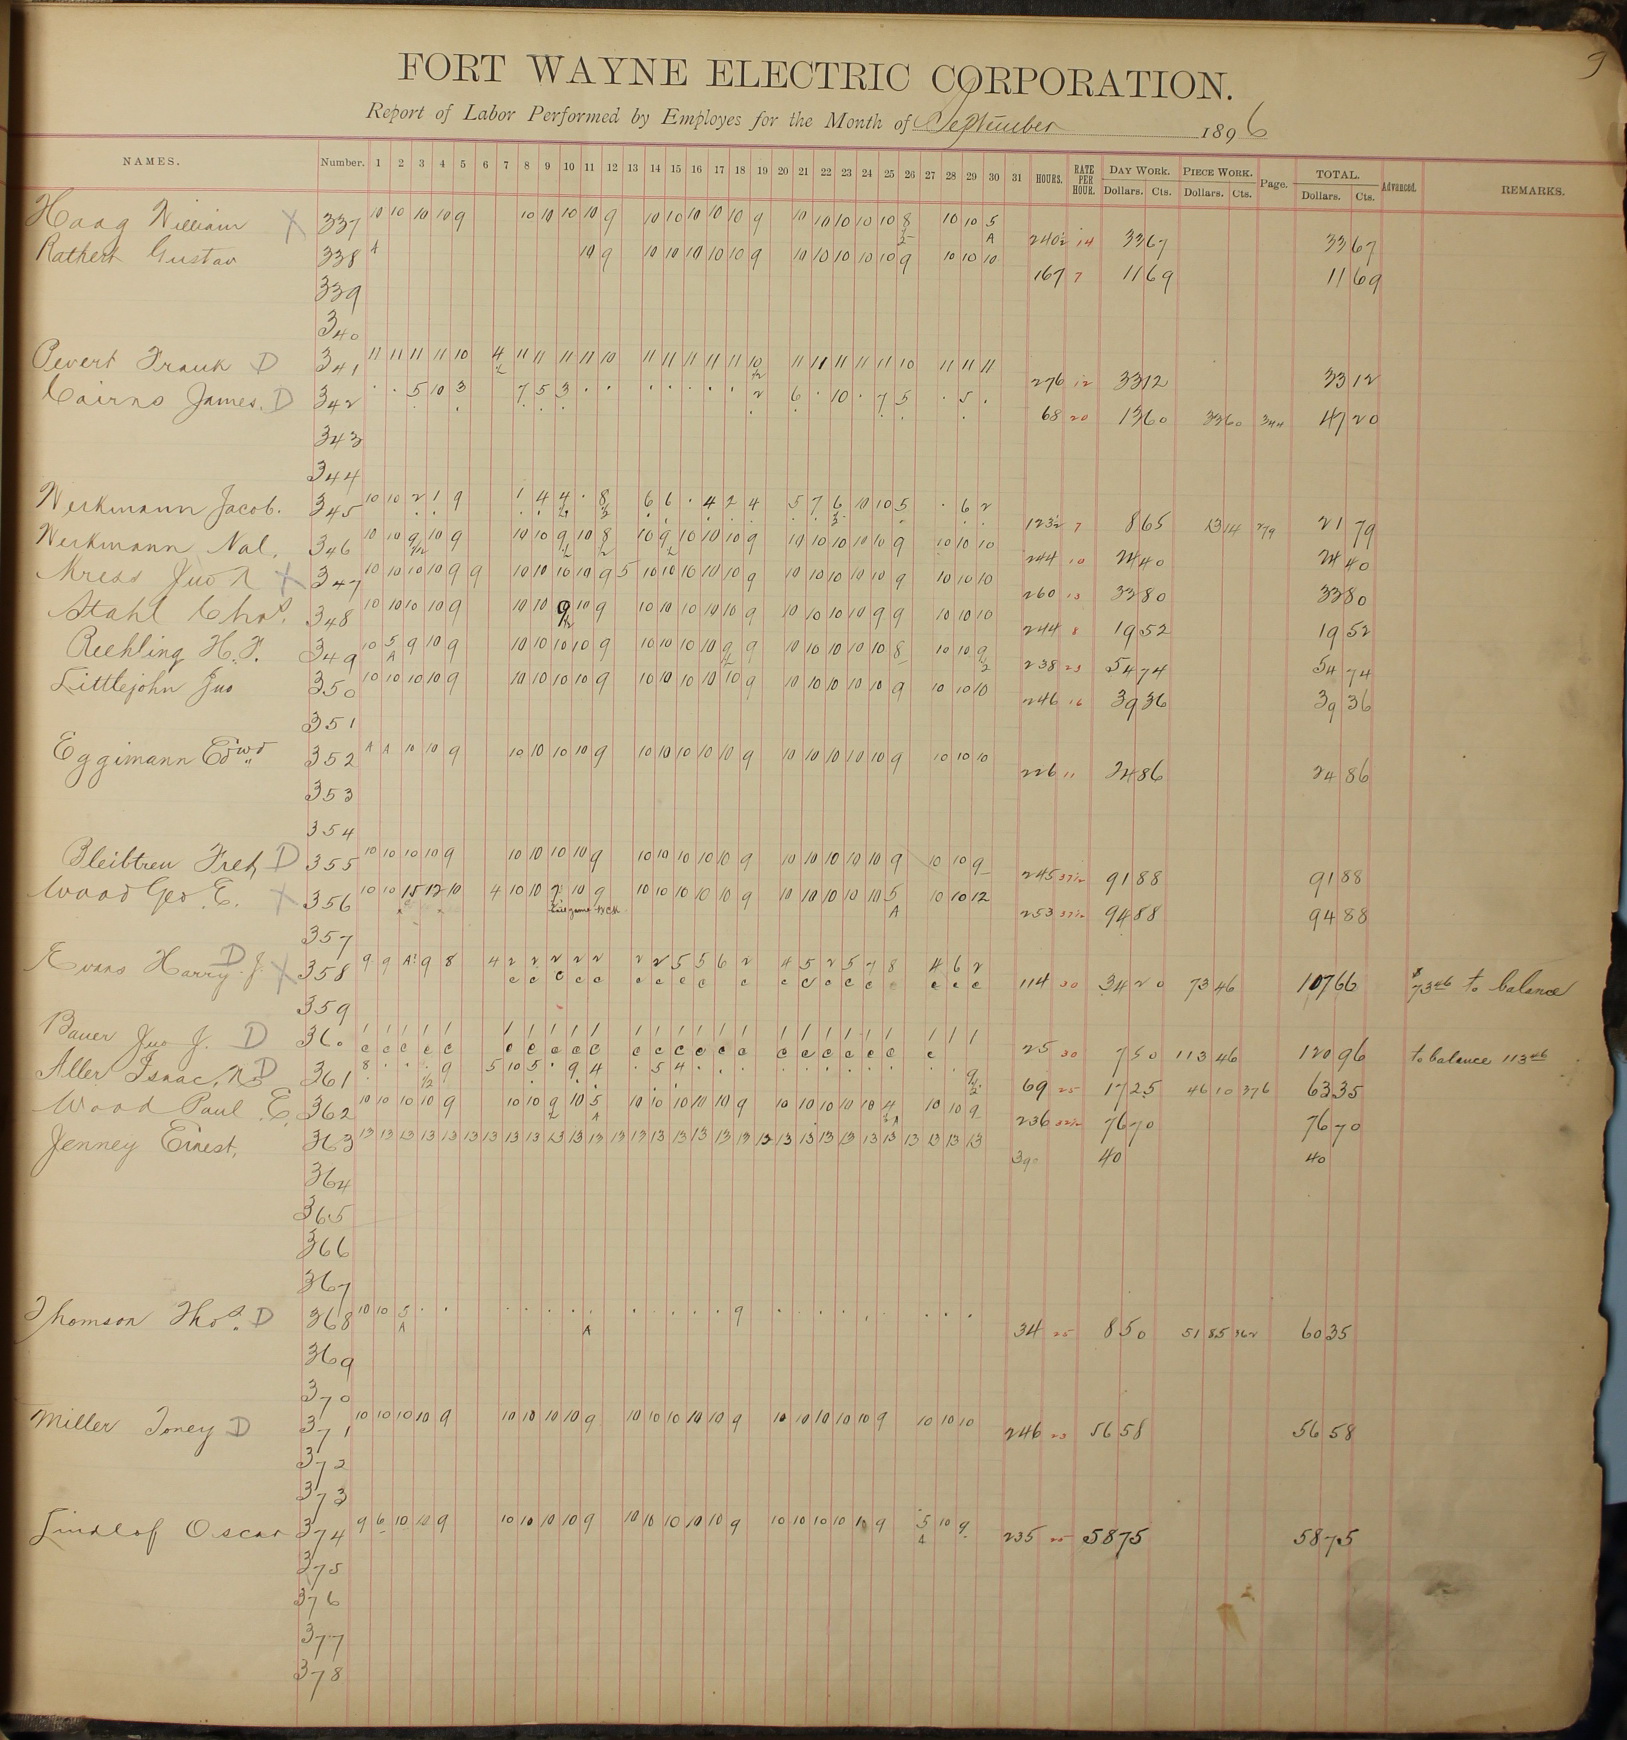 9
FORT WAYNE ELECTRIC CORPORATION.
Report of Labor Performed by Employes for the Month of September 1896
NAMES. Number. 1 2 3 4 5 6 7 8 9 10 11 12 13 14 15 16 17 18 19 20 21 22 23 24 25 26 27 28 29 30 31 HOURS. RATE PER HOUR. DAY WORK. Dollars. Cts. PIECE WORK. Dollars. Cts. Page. TOTAL. Dollars. Cts. Advanced. REMARKS.
Haag William X 337 10 10 10 10 9 10 10 10 10 9 10 10 10 10 10 9 10 10 10 10 10 8 1/2 10 10 5 A 240½ 14 33 67 33 67
Rathert Gustav 338 A 10 9 10 10 10 10 10 9 10 10 10 10 10 9 10 10 10 167 7 11 69 11 69
339
340
Pevert Frank D 341 11 11 11 11 10 4 11 11 11 11 10 11 11 11 11 11 10 1/2 11 11 11 11 11 10 11 11 11 276 12 33 12 33 12
Cairns James. D 342 5 10 3 7 5 3 2 6 10 7 5 5 68 20 13 60 33 60 344 47 20
343
344
Werkmann Jacob. 345 10 10 2 1 9 1 4 4 8 1/2 6 6 4 2 4 5 7 6 10 10 5 6 2 123½ 7 8 65 13 14 279 21 79
Werkmann Nal. 346 10 10 9 1/2 10 9 10 10 9 1/2 10 8 1/2 10 9 1/2 10 10 10 9 10 10 10 10 10 9 10 10 10 244 10 24 40 24 40
Kress Jno A X 347 10 10 10 10 9 9 10 10 10 10 9 5 10 10 10 10 10 9 10 10 10 10 10 9 10 10 10 260 13 33 80 33 80
Stahl Chas. 348 10 10 10 10 9 10 10 9 1/2 10 9 10 10 10 10 10 9 10 10 10 10 9 9 10 10 10 244 8 19 52 19 52
Rechling H. F. 349 10 5 A 9 10 9 10 10 10 10 9 10 10 10 10 9 1/2 9 10 10 10 10 10 8 10 10 9 1/2 238 23 54 74 54 74
Littlejohn Jno 350 10 10 10 10 9 10 10 10 10 9 10 10 10 10 10 9 10 10 10 10 10 9 10 10 10 246 16 39 36 39 36
351
Eggimann Edwd 352 A A 10 10 9 10 10 10 10 9 10 10 10 10 10 9 10 10 10 10 10 9 10 10 10 226 11 24 86 24 86
353
354
Bleibtreu Fred D 355 10 10 10 10 9 10 10 10 10 9 10 10 10 10 10 9 10 10 10 10 10 9 10 10 9 245 37½ 91 88 91 88
Wood Geo. E. X 356 10 10 15 12 10 4 10 10 7 10 9 10 10 10 10 10 9 10 10 10 10 10 5 A 10 10 12 253 37½ 94 88 94 88
357
Evans Harry J. D X 358 9 9 A 9 8 4 2 2 2 2 2 2 2 5 5 6 2 4 5 2 5 7 8 4 6 2 114 30 34 20 73 46 107 66 $73 46 to balance
359
Bauer Jno J. D 360 1 1 1 1 1 1 1 1 1 1 1 1 1 1 1 1 1 1 1 1 1 1 1 1 1 25 30 7 50 113 46 120 96 to balance 113 46
Aller Isaac, N D 361 8 1/2 9 5 10 5 9 4 5 4 9 1/2 69 25 17 25 46 10 376 63 35
Wood Paul E. 362 10 10 10 10 9 10 10 9 1/2 10 5 A 10 10 10 10 10 9 10 10 10 10 10 4 1/2 A 10 10 9 236 32½ 76 70 76 70
Jenney Ernest, 363 13 13 13 13 13 13 13 13 13 13 13 13 13 13 13 13 13 13 13 13 13 13 13 13 13 13 13 13 13 13 390 40 40
364
365
366
367
Thomson Thos. D 368 10 10 5 A A 9 34 25 8 50 51 85 362 60 35
369
370
Miller Toney D 371 10 10 10 10 9 10 10 10 10 9 10 10 10 10 10 9 10 10 10 10 10 9 10 10 10 246 23 56 58 56 58
372
373
Lindlof Oscar 374 9 6 10 10 9 10 10 10 10 9 10 10 10 10 10 9 10 10 10 10 10 9 5 A 10 9 235 25 58 75 58 75
375
376
377
378